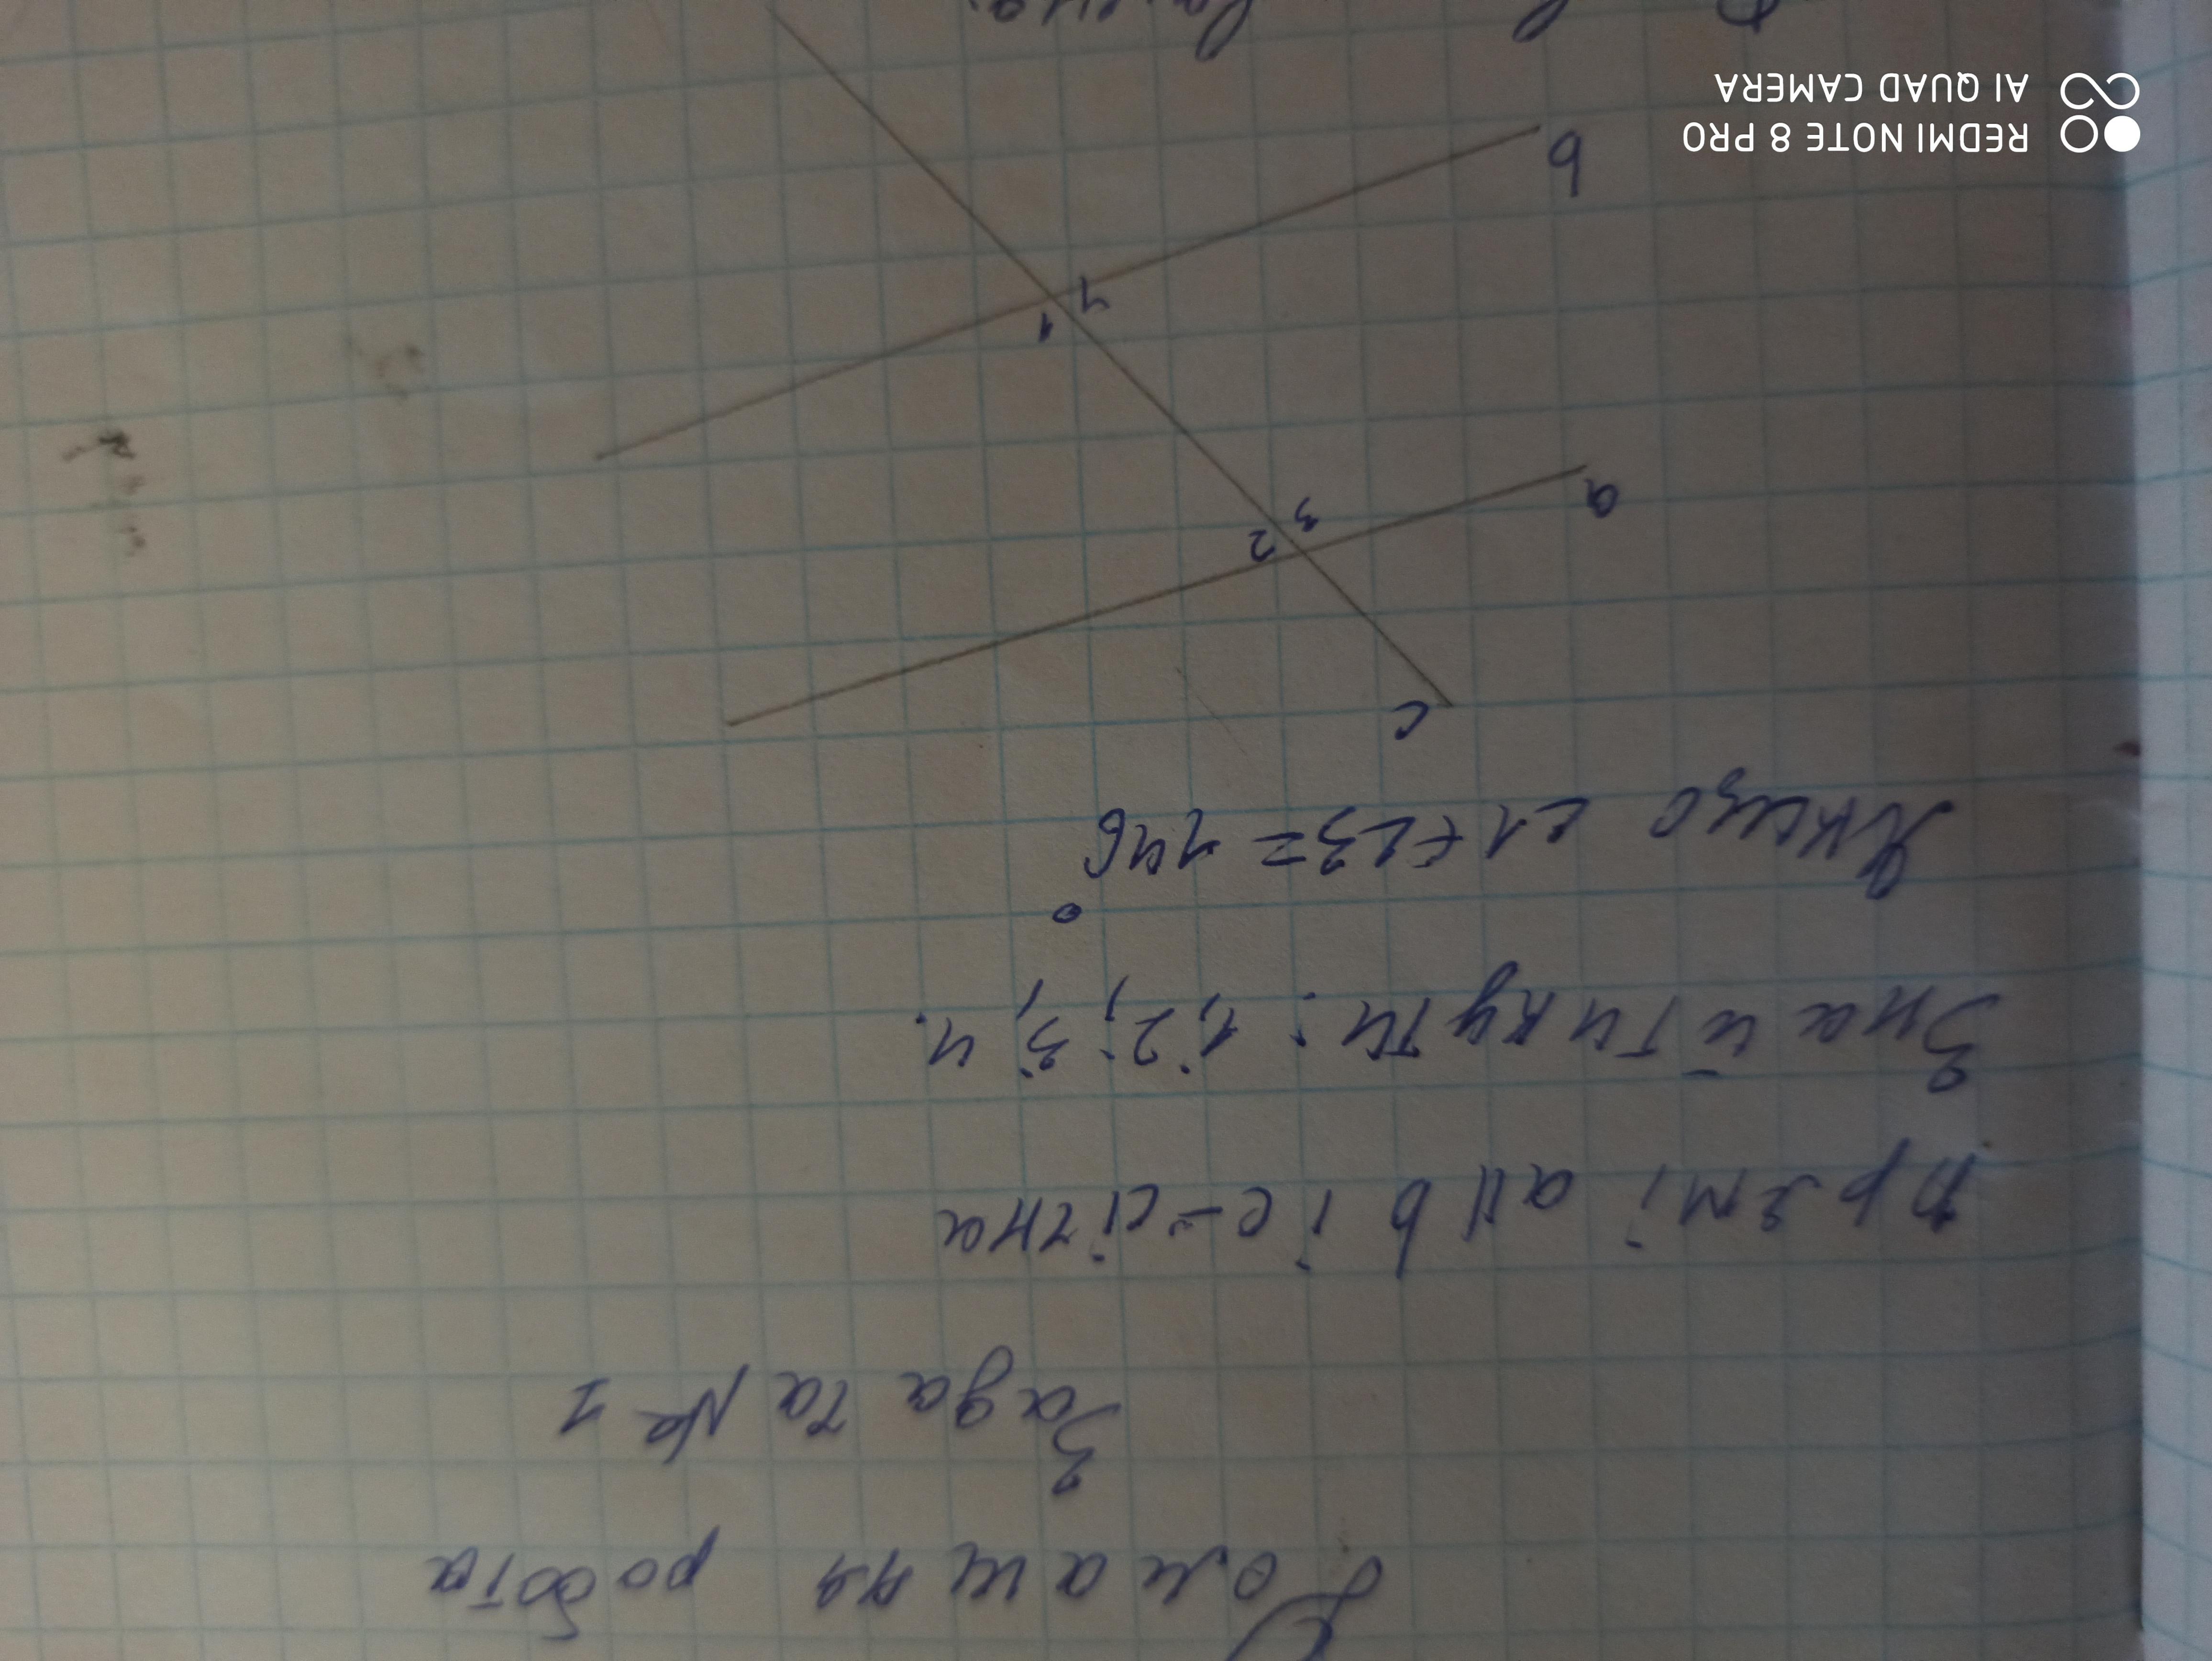 Домашня робота
Задача № 1
Прямі a || b і c - січна
Знайти кути: 1, 2, 3, 4.
Якщо ∠1 + ∠3 = 146°
c
a
2 3
1 4
b
REDMI NOTE 8 PRO
AI QUAD CAMERA